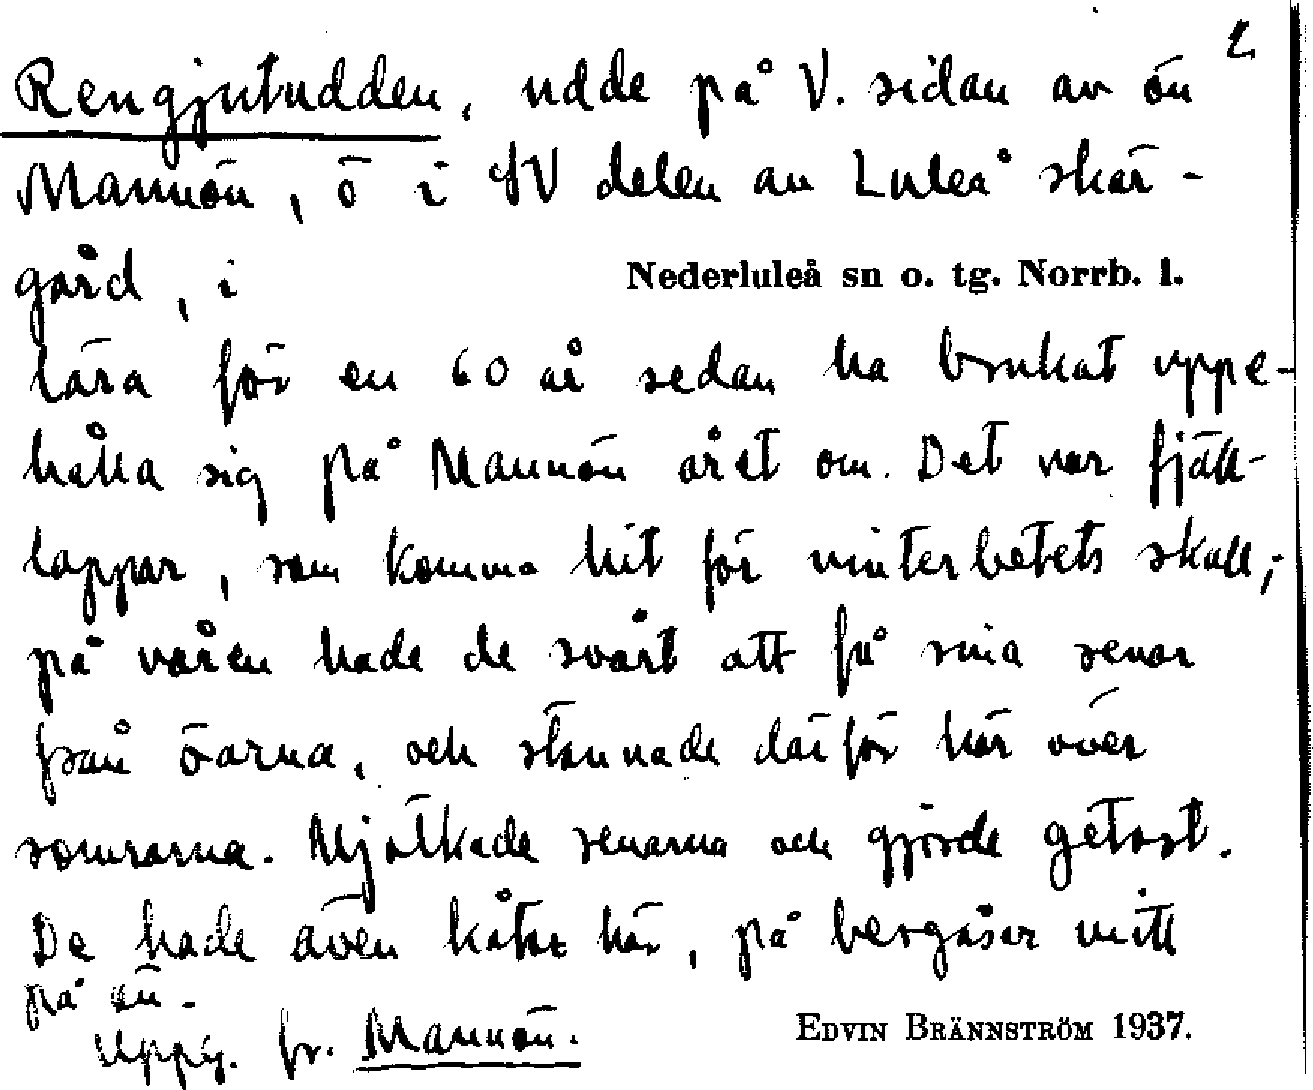 2
Rengjutudden, udde på V. sidan av ön
Mannön, ö i SV delen av Luleå skär-
gård, i Nederluleå sn o. tg. Norrb. l.
lära för en 60 år sedan ha brukat uppe-
hålla sig på Mannön året om. Det var fjäll-
lappar, som komma hit för vinterbetets skull;
på våren hade de svårt att få sina renar
från öarna, och stannade därför här över
somrarna. Mjölkade renarna och gjorde getost.
De hade även kåtor här, på bergåsar mitt
på ön.
Uppg. fr. Mannön.
EDVIN BRÄNNSTRÖM 1937.